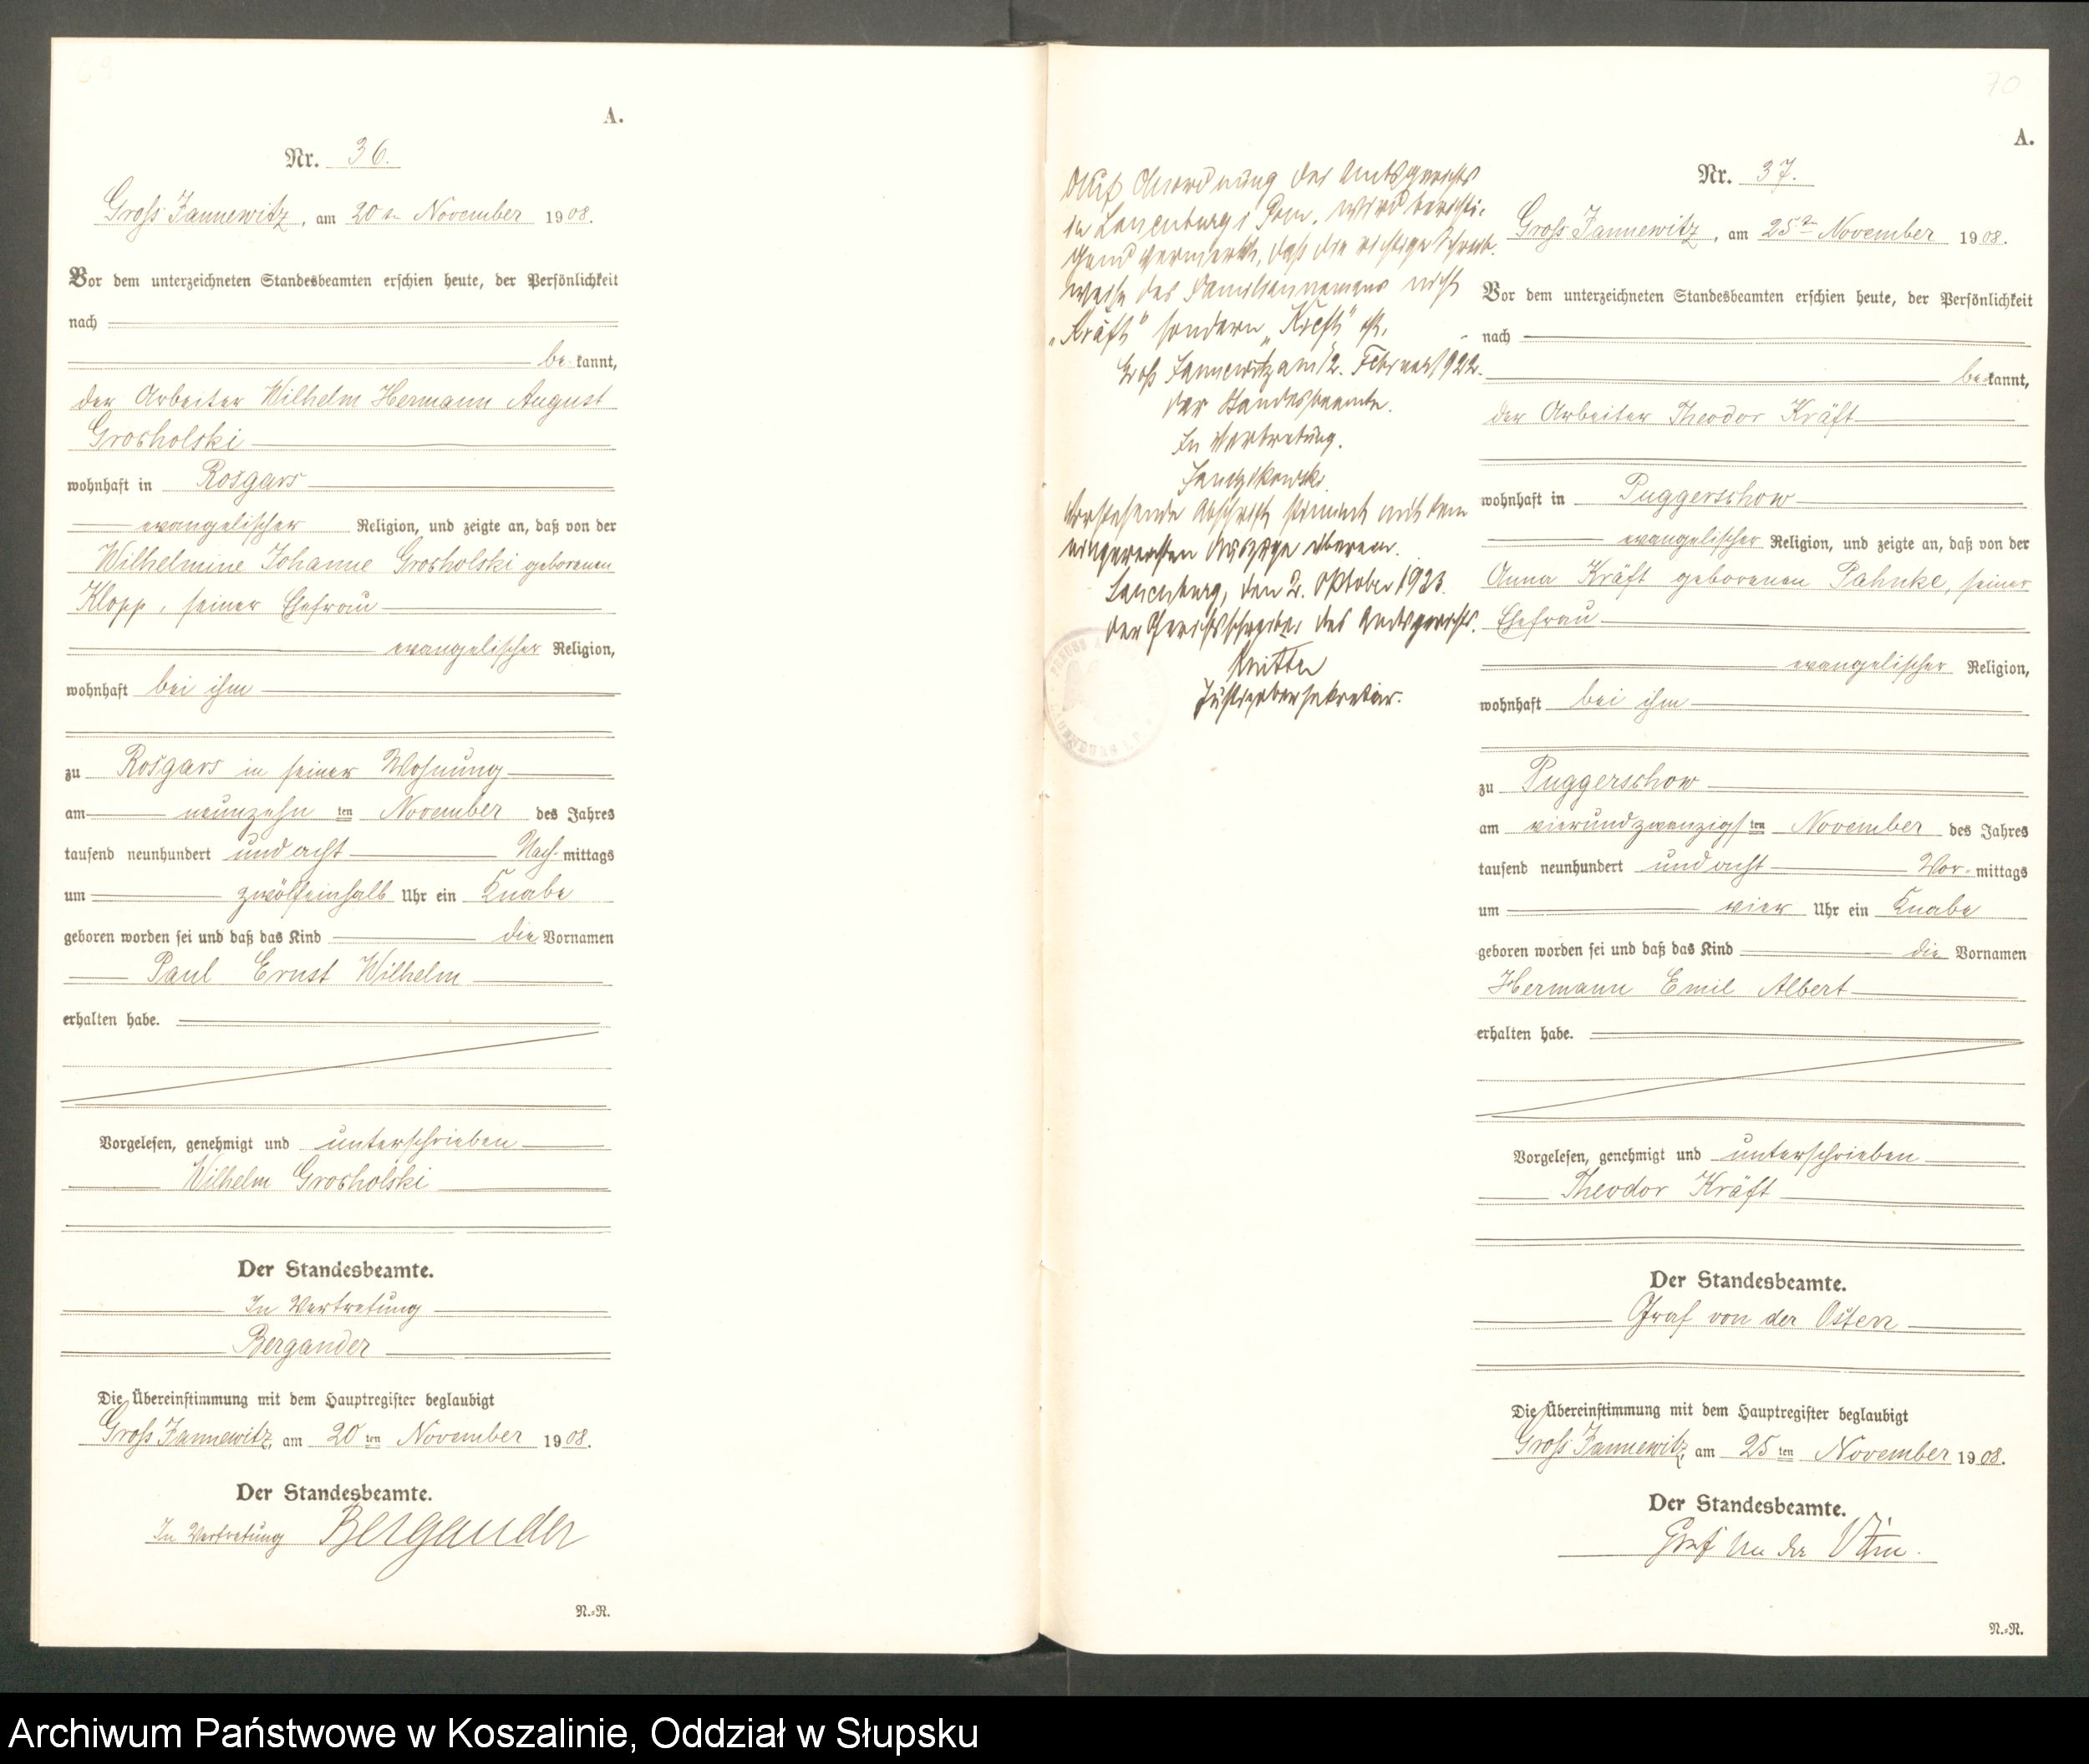 69
A.
Nr. 36.
Groß Jannewitz, am 20ten November 1908.
Vor dem unterzeichneten Standesbeamten erschien heute, der Persönlichkeit
nach
be kannt,
der Arbeiter Wilhelm Hermann August
Grocholski
wohnhaft in Rosgars
evangelischer Religion, und zeigte an, daß von der
Wilhelmine Johanne Grocholski geborenen
Klopp, seiner Ehefrau
evangelischer Religion,
wohnhaft bei ihm
zu Rosgars in seiner Wohnung
am neunzehn ten November des Jahres
tausend neunhundert und acht Nach-mittags
um zwölfeinhalb Uhr ein Knabe
geboren worden sei und daß das Kind die Vornamen
Paul Ernst Wilhelm
erhalten habe.
Vorgelesen, genehmigt und unterschrieben
Wilhelm Grocholski
Der Standesbeamte.
In Vertretung
Bergander
Die Übereinstimmung mit dem Hauptregister beglaubigt
Groß Jannewitz, am 20 ten November 1908.
Der Standesbeamte.
In Vertretung Bergander
N.-R.
70
A.
Nr. 37.
Groß Jannewitz, am 25ten November 1908.
Vor dem unterzeichneten Standesbeamten erschien heute, der Persönlichkeit
nach
be kannt,
der Arbeiter Theodor Kräft
wohnhaft in Puggerschow
evangelischer Religion, und zeigte an, daß von der
Anna Kräft geborenen Pahnke, seiner
Ehefrau
evangelischer Religion,
wohnhaft bei ihm
zu Puggerschow
am vierundzwanzigsten November des Jahres
tausend neunhundert und acht Vor-mittags
um vier Uhr ein Knabe
geboren worden sei und daß das Kind die Vornamen
Hermann Emil Albert
erhalten habe.
Vorgelesen, genehmigt und unterschrieben
Theodor Kräft
Der Standesbeamte.
Graf von der Osten
Die Übereinstimmung mit dem Hauptregister beglaubigt
Groß Jannewitz, am 25 ten November 1908.
Der Standesbeamte.
Graf von der Osten.
N.-R.
Auf Anordnung des Amtsgerichts
in Lauenburg i Pom. wird berichti-
gend vermerkt, daß die richtige Schreib-
weise des Familiennamens nicht
„Kräft" sondern „Kreft" ist.
Groß Jannewitz am 12. Februar 1922.
Der Standesbeamte.
In Vertretung.
Vorstehende Abschrift stimmt mit dem
eingereichten Auszuge überein.
Lauenburg, den 2. Oktober 1923.
Der Gerichtsschreiber des Amtsgerichts.
Justizobersekretär.
Archiwum Państwowe w Koszalinie, Oddział w Słupsku